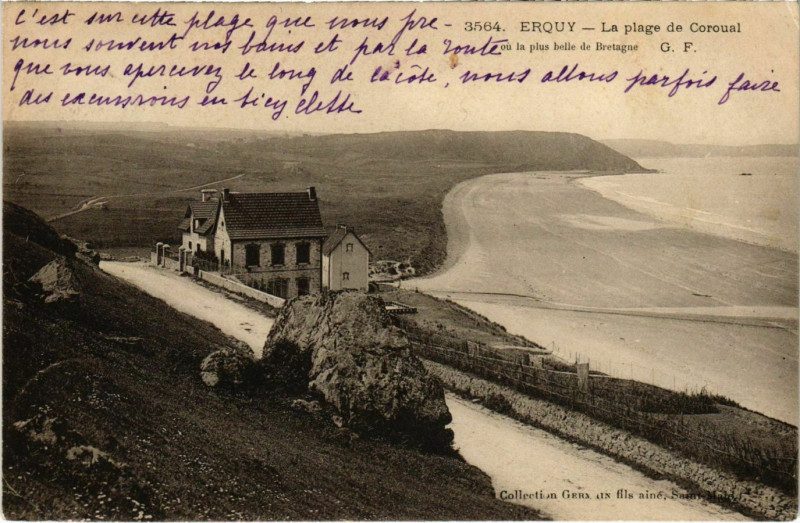 c'est sur cette plage que nous pre-
nous souvent nos bains et par la route
que vous apercevez le long de la côte, nous allons parfois faire
des excursions en bicyclette
3564. ERQUY — La plage de Coroual
où la plus belle de Bretagne G. F.
Collection GERMAIN fils aîné, Saint-Malo